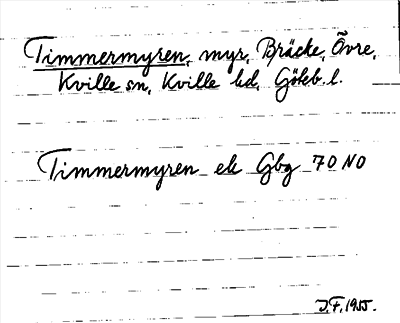 Timmermyren, myr, Bräcke, Övre,
Kville sn, Kville hd, Göteb. l.
Timmermyren ek Gbg 70 NO
J.F. 1955.